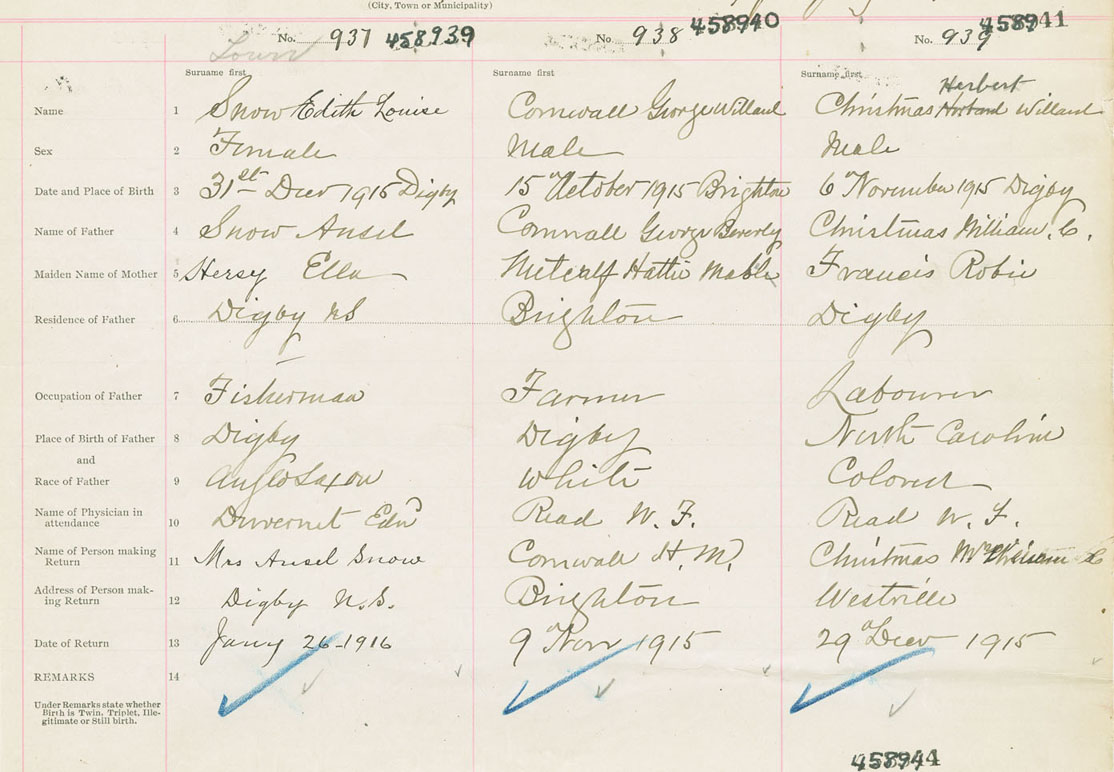 (City, Town or Municipality)
Town No. 937 458939 No. 938 458940 No. 939 458941
Surname first Surname first Surname first
Herbert
Name 1 Snow Edith Louise Cornwall George Willard Christmas Willard
Sex 2 Female Male Male
Date and Place of Birth 3 31st Decr 1915 Digby 15 October 1915 Brighton 6 November 1915 Digby
Name of Father 4 Snow Ansel Cornwall George Beverly Christmas William. C.
Maiden Name of Mother 5 Hersey Ella Metcalf Hattie Mable Francis Robie
Residence of Father 6 Digby NS Brighton Digby
Occupation of Father 7 Fisherman Farmer Labourer
Place of Birth of Father 8 Digby Digby North Caroline
and
Race of Father 9 Anglo Saxon White Colored
Name of Physician in
attendance 10 Duvernet Edw Read W. F. Read W. F.
Name of Person making
Return 11 Mrs Ansel Snow Cornwall H. M. Christmas William C
Address of Person mak-
ing Return 12 Digby N.S. Brighton Westville
Date of Return 13 Jany 26-1916 9 Novr 1915 29 Decr 1915
REMARKS 14
Under Remarks state whether
Birth is Twin, Triplet, Ille-
gitimate or Still birth.
458944